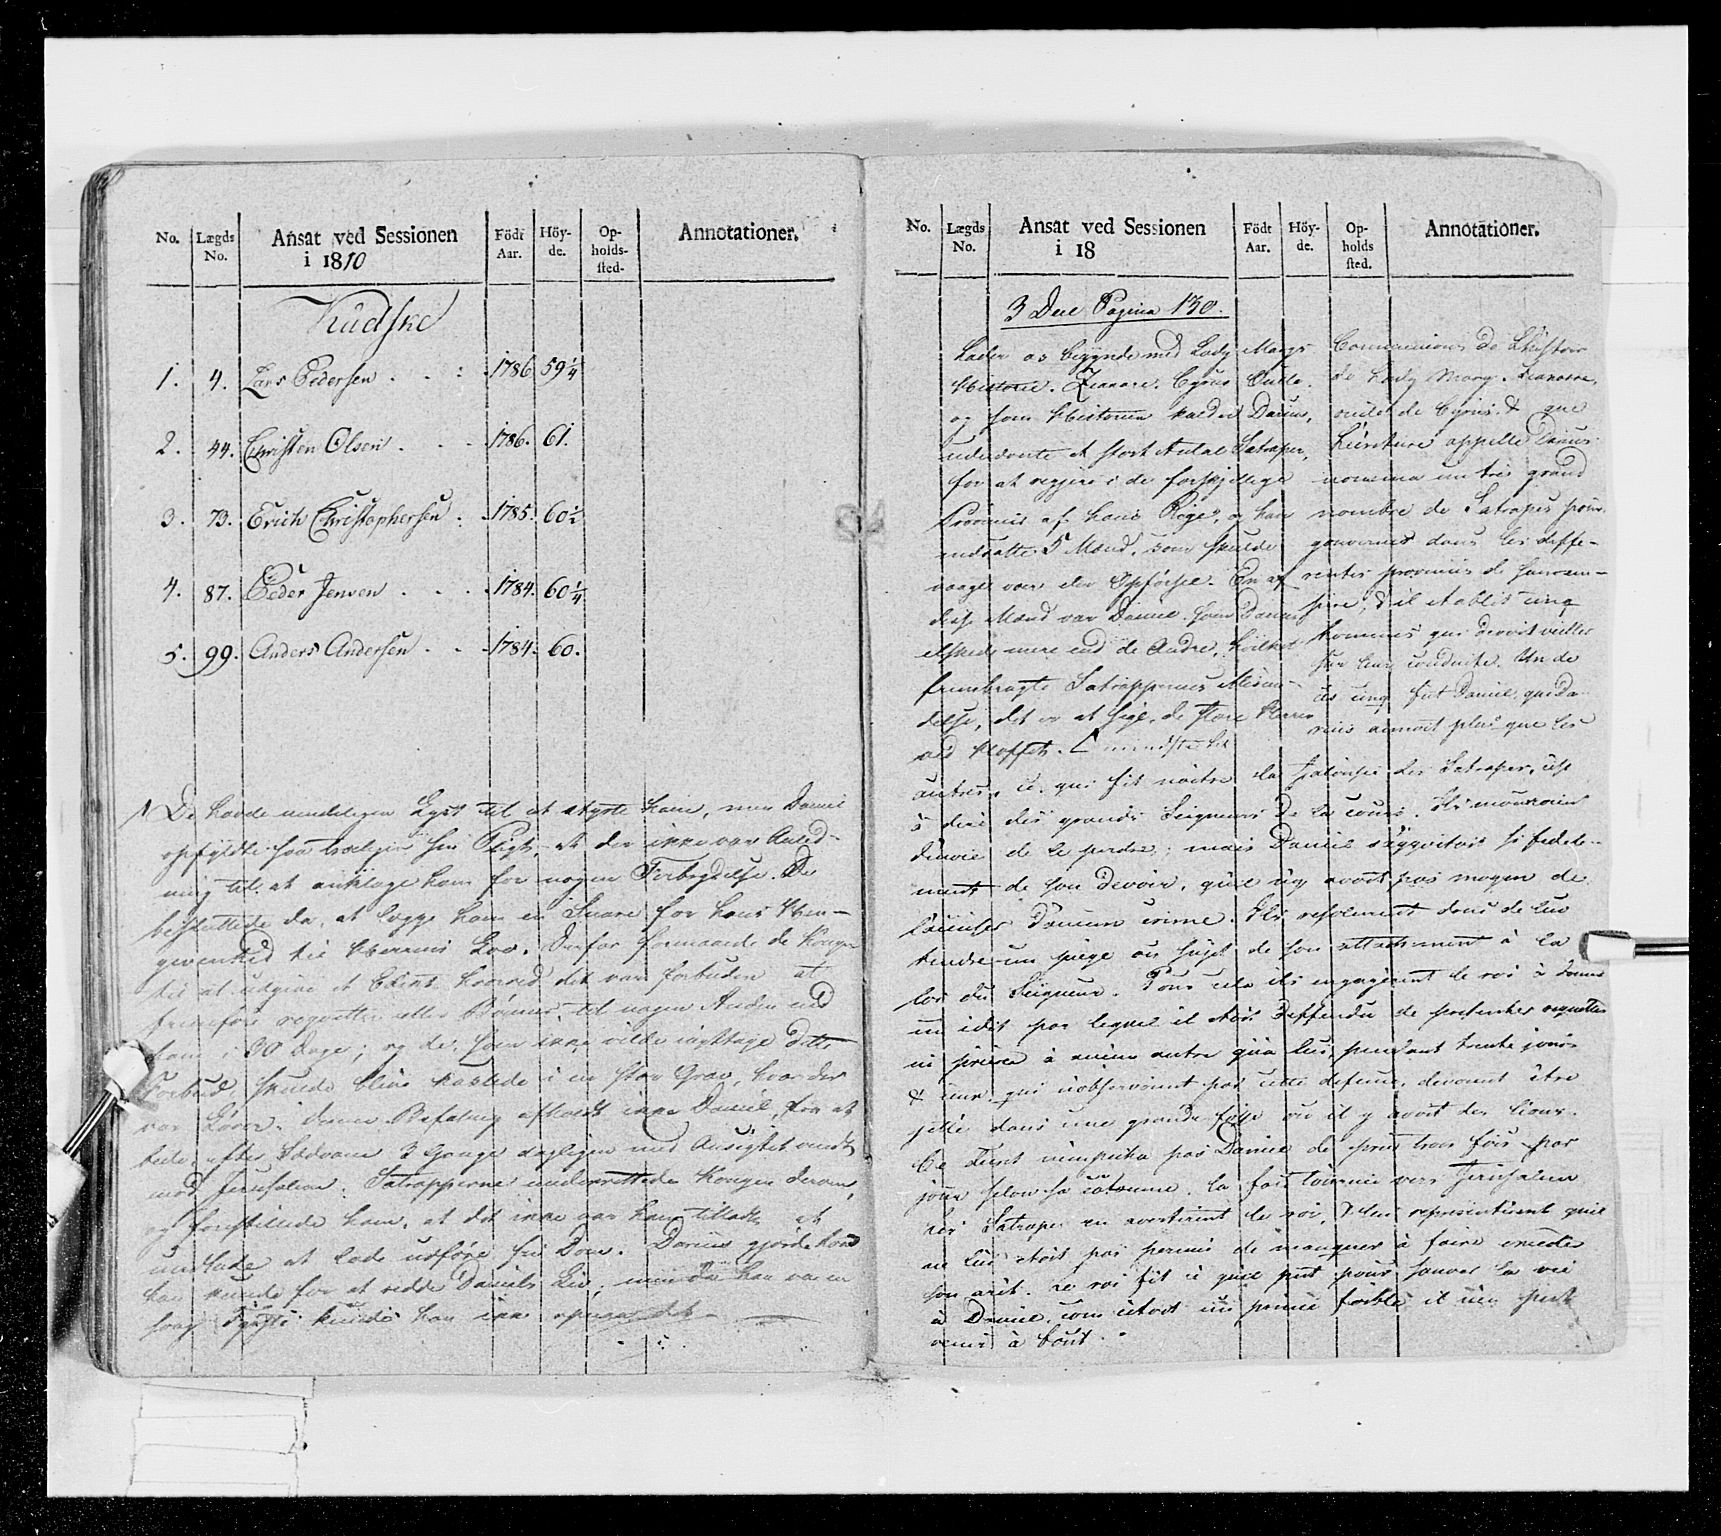 No. Lægds No. Ansat ved Sessionen i 1810 Födt Aar. Höy-de. Op-holds-sted. Annotationer.
Kudske
1. 4. Lars Pedersen . . : 1786 59 1/4
2. 44. Christen Olsen . . . 1786. 61.
3. 73. Erich Christophersen . 1785. 60 1/2
4. 87. Peder Jensen . . . 1784. 60 1/4
5. 99. Anders Andersen . . 1784. 60.
De havde Lyst til at styrte ham, men Daniel
opfyldte saa sin Pligt, at der ikke var Anled-
ning til at anklage ham for nogen Forbrydelse. De
besluttede da, at lægge ham en Snare for hans Hen-
givenhed til Herrens Lov. Derfor formaaede de Kongen
til at udgive et Edict hvorved det var forbuden at
fremføre eller Bønner til nogen Anden end
ham i 30 Dage; og de, som ikke vilde iagttage dette
Forbud, skulde blive kastede i en stor Grav, hvor der
var Løver. denne Befaling afholdt ikke Daniel, fra at
bede efter Sædvane 3 Gange dagligen med Ansigtet vendt
mod Jerusalem. Satrapperne underrettede Kongen derom,
og forestillede ham, at det ikke var ham tilladt at
undlade at lade udføre sin Dom. Darius gjorde hvad
han kunde for at redde Daniels Liv, men da han var en
svag Fyrste kunde han ikke
No. Lægds No. Ansat ved Sessionen i 18 Födt Aar. Höy-de. Op-holds sted. Annotationer.
3 Dere Pagina 130.
Lader os begynde med Lady Marys
Historie. Zianare. Cyrus Onkle.
og som Historien kalder Darius,
udnævnte et stort Antal Satraper,
for at regjere i de forskjellige
Provinser af hans Rige, og han
indsatte 5 Mænd, som skulde
vaage over der Opførsel. En af
disse Mænd var Daniel, som Darius
elskede mere end de Andre, hvilket
frembragte Satrappernes Misun-
delse, det er at sige, de store Herrer
ved Hoffet.
Commencons de L'histoire
de Lady Mary.
oncle de Cyrus, & que
L'écriture appelle Darius
nomma un très grand
nombre de Satrapes pour
gouverner dans les diffe-
rentes provinces de son em-
pire, & il etablit cinq
hommes qui devoit veiller
sur leur conduite. Un de
ces cinq fut Daniel, que Da-
rius aimoit plus que les
autres, ce qui fit naitre la jalousie des Satrapes, c'est
à dire des grands Seigneurs de la cour. Ils mouroient
d'envie de le perdre; mais Daniel s'aqquitoit si fidele-
ment de son devoir, qu'il n'y avoit pas moyen de
l'accuser d'aucun crime. Ils resolurent donc de lui
tendre un piège au sujet de son attachement à la
loi du Seigneur. Pour cela ils engagerent le roi à donner
un édit par lequel il étoit deffendu de presenter requettes
ni priere à aucun autre qu'à lui, pendant trente jours
& ceux qui n'observoient pas cette defense, devoient être
jetté dans une grande fosse où il y avoit des lions.
Ce n'empecha pas Daniel de prier trois fois par
jour selon sa coutume, la face tournée vers Jerusalem
Les Satrapes en avertirent le roi, & lui representerent qu'il
ne lui étoit pas permis de manquer à faire executer
son arêt. Le roi fit ce qu'il put pour sauver la vie
à Daniel, com c'étoit un prince foible il n'en put
venir à bout.